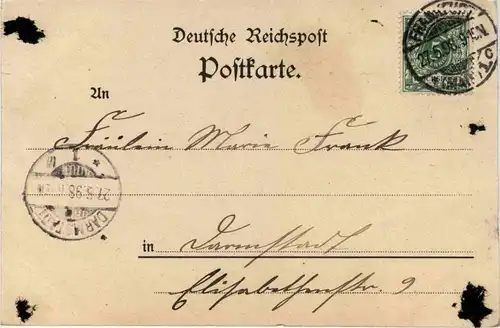 Deutsche Reichspost
Postkarte.
FRANKFURT
27.5.98.
(MAIN) 1 c
An
Fräulein Marie Frank
1
27.5.98.
DARMSTADT
in Darmstadt
Elisabethenstr. 9